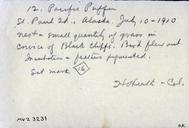 12. Pacific Puffin
St. Paul Id., Alaska, July 10-1910
nest small quantity of grass in
crevice of Black Cliffs. Bird flew out
Incubation - feathers pigmented.
Set mark 12
H Heath - Col.
MVZ 3231